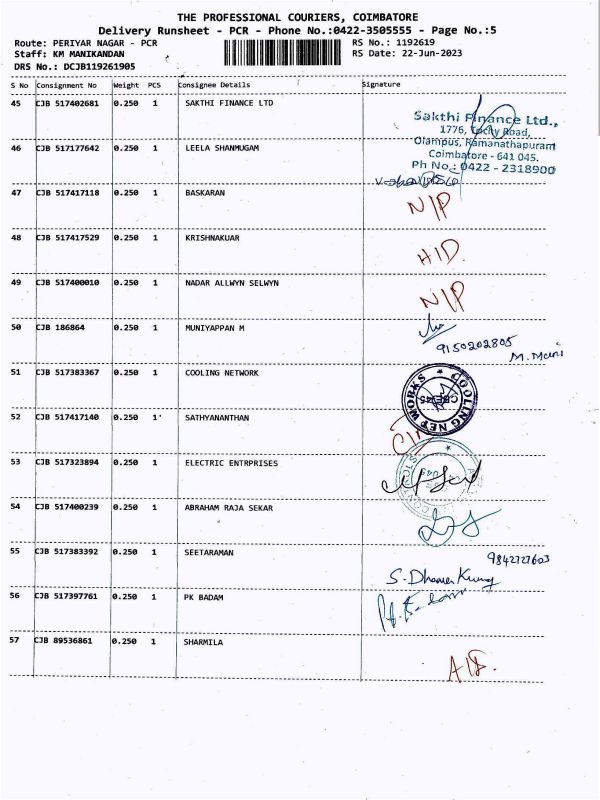 THE PROFESSIONAL COURIERS, COIMBATORE
Delivery Runsheet - PCR - Phone No.:0422-3505555 - Page No.:5
Route: PERIYAR NAGAR - PCR
RS No.: 1192619
Staff: KM MANIKANDAN
RS Date: 22-Jun-2023
DRS No.: DCJB119261905
S No Consignment No Weight PCS Consignee Details Signature
45 CJB 517402681 0.250 1 SAKTHI FINANCE LTD
Sakthi Finance Ltd.,
1776, Trichy Road,
Olampus, Ramanathapuram
Coimbatore - 641 045.
Ph No.: 0422 - 2318900
46 CJB 517177642 0.250 1 LEELA SHANMUGAM
47 CJB 517417118 0.250 1 BASKARAN N/P
48 CJB 517417529 0.250 1 KRISHNAKUAR H/D.
49 CJB 517400010 0.250 1 NADAR ALLWYN SELWYN N/P
50 CJB 186864 0.250 1 MUNIYAPPAN M
9150202805
M. Mani
51 CJB 517383367 0.250 1 COOLING NETWORK
COOLING NET WORKS
CBE-45
52 CJB 517417140 0.250 1 SATHYANANTHAN
53 CJB 517323894 0.250 1 ELECTRIC ENTRPRISES
54 CJB 517400239 0.250 1 ABRAHAM RAJA SEKAR
55 CJB 517383392 0.250 1 SEETARAMAN
9842727603
56 CJB 517397761 0.250 1 PK BADAM
57 CJB 89536861 0.250 1 SHARMILA